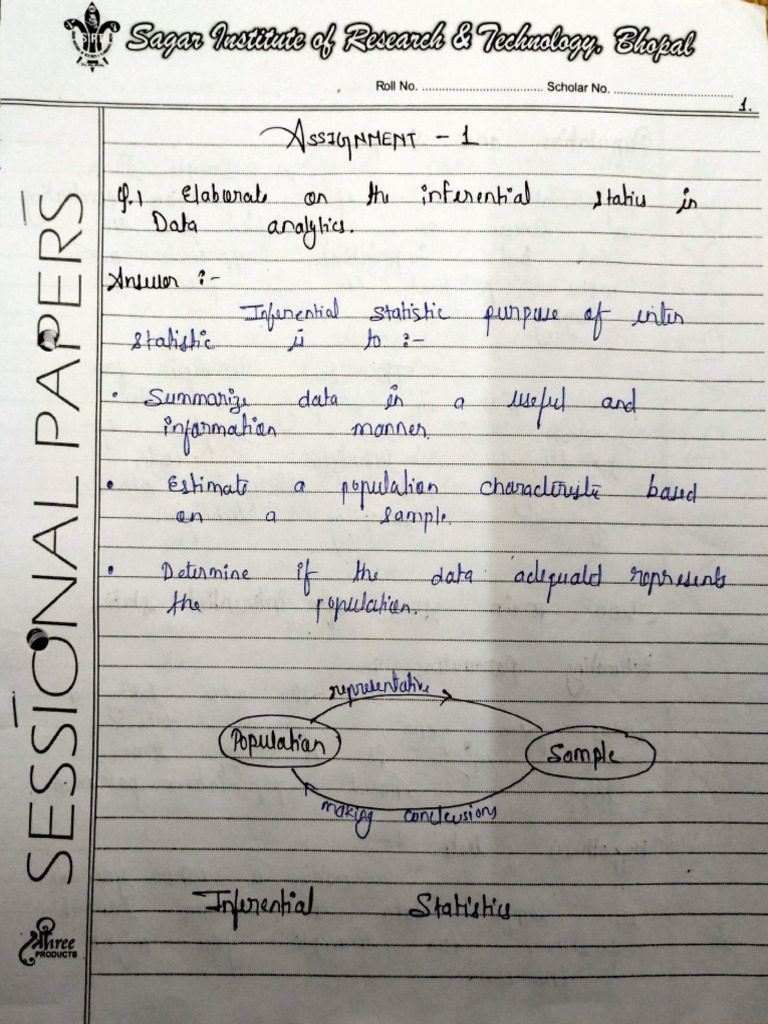 SIRT
Sagar Institute of Research & Technology, Bhopal
Roll No. ................................ Scholar No. ................................
1.
ASSIGNMENT - 1
Q.1 Elaborate on the inferential statics in
Data analytics.
Answer :-
Inferential statistic purpose of inter
statistic is to :-
• Summarize data in a useful and
information manner.
• Estimate a population characteristic based
on a sample.
• Determine if the data adequald represents
the population.
representative
Population
Sample
making conclusions
Inferential Statistics
SESSIONAL PAPERS
Shree
PRODUCTS